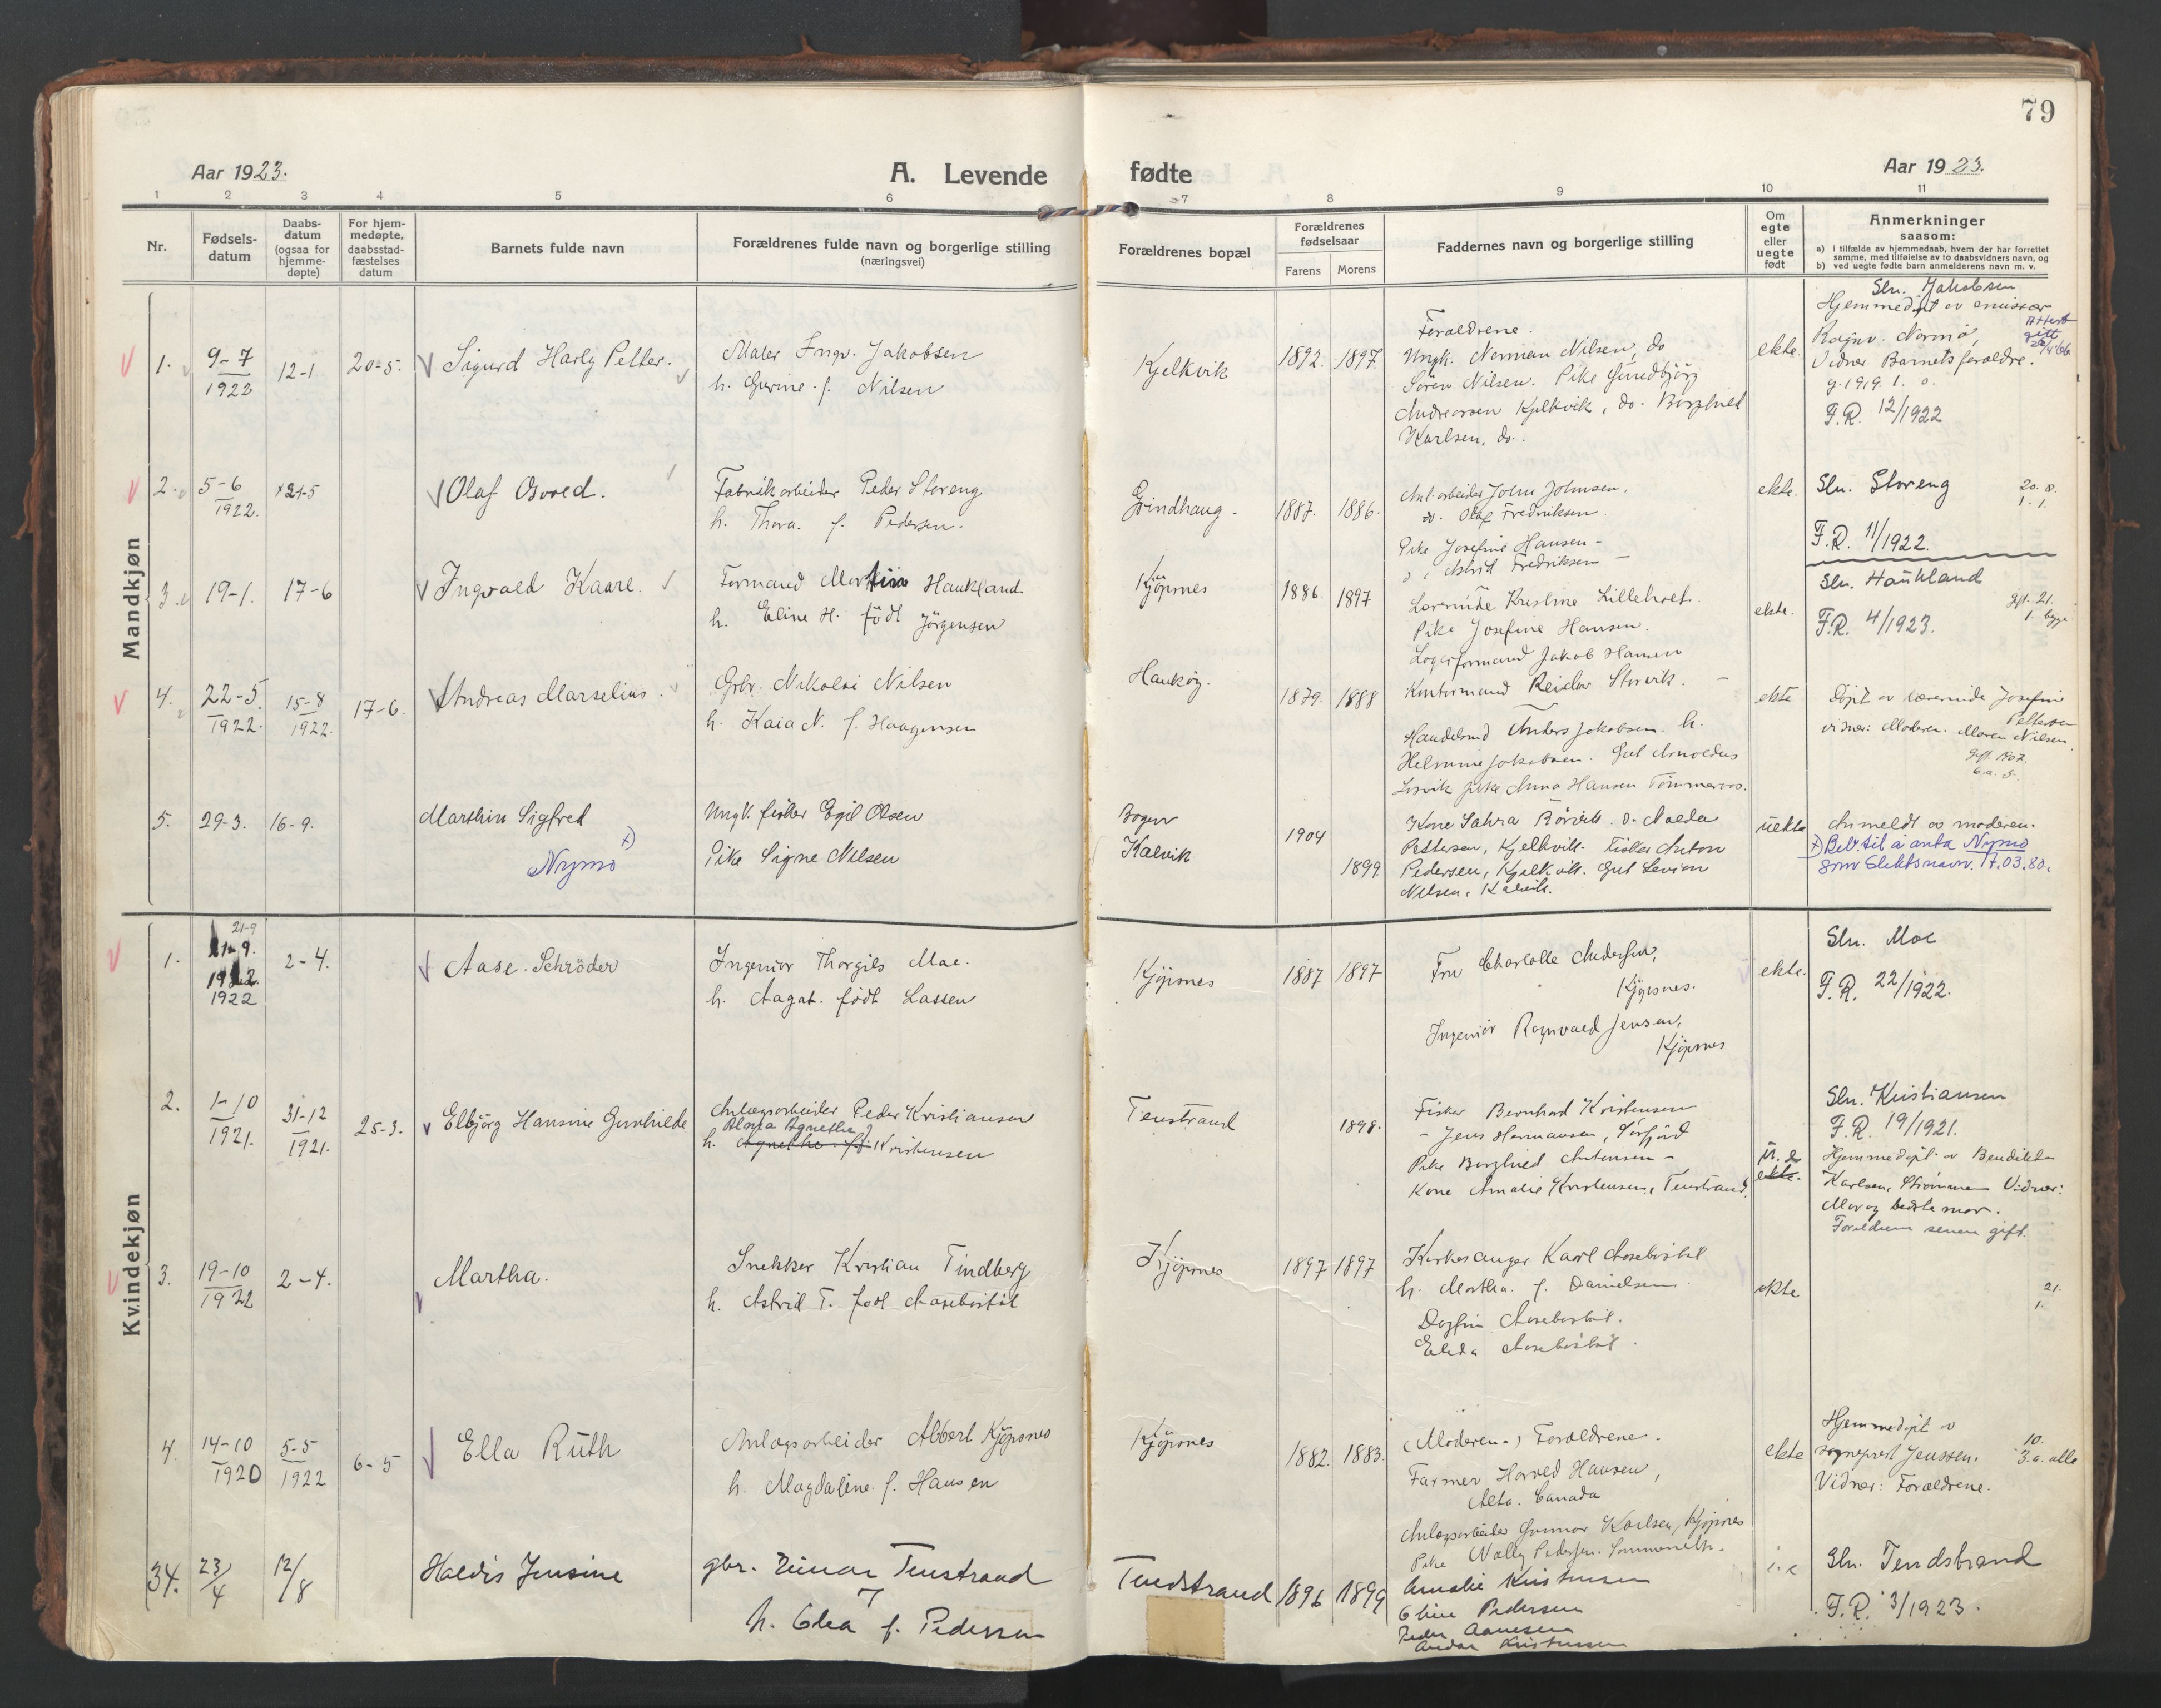 79
Aar 1923.
A. Levende fødte
Aar 1923.
1 2 3 4 5 6 7 8 9 10 11
Nr.
Fødsels-
datum
Daabs-
datum
(ogsaa for
hjemme-
døpte)
For hjem-
medøpte,
daabsstad-
fæstelses
datum
Barnets fulde navn
Forældrenes fulde navn og borgerlige stilling
(næringsvei)
Forældrenes bopæl
Forældrenes
fødselsaar
Farens Morens
Faddernes navn og borgerlige stilling
Om
egte
eller
uegte
født
Anmerkninger
saasom:
a) i tilfælde av hjemmedaab, hvem der har forrettet
samme, med tilføielse av to daabsvidners navn, og
b) ved uegte fødte barn anmelderens navn m. v.
Mandkjøn
1. 9-7
1922
12-1
20-5.
Sigurd Harly Petter.
Maler Ingv. Jakobsen
h. Gurine f. Nilsen
Kjelkvik
1892. 1897.
Foræeldrene.
Ungk. Norman Nilsen, do
Sören Nilsen. Pike Gundbjörg
Andreassen Kjelkvik, do. Borghild
Karlsen, do.
ekte.
Sln. Jakobsen
Hjemmedöpt av emissær
Ragnv. Normo,
Vidner Barnets foræeldre.
g. 1919. 1. o.
F.R. 12/1922
2. 5-6
1922.
21-5
Olaf Osvæld.
Fabrikarbeider Peder Storeng
h. Thora. f. Pedersen.
Grindhaug.
1887. 1886.
Anl.arbeider John Johnsen.
do. Olaf Fredriksen.
Pike Josefine Hansen -
do. Astrid Fredriksen -
ekte.
Sln. Storeng
20. 8.
1. 1.
F.R. 11/1922.
3. 19-1. 17-6
Ingvald Kaare.
Formand Martin Haukland
h. Eline H. född Jörgensen
Kjöpsnes
1886. 1897
Lærerinde Kristine Lilleholt.
Pike Josefine Hansen.
Lagerformand Jakob Hansen
Kontormand Reidar Storvik.
ekte.
Sln. Haukland
F.R. 4/1923.
4. 22-5.
1922.
15-8
1922.
17-6.
Andreas Marselius.
Grbr. Nikolai Nilsen
h. Kaia N. f. Haagensen
Hauköy.
1879. 1888
Handelsmd Anders Jakobsen. h.
Helmine Jakobsen. Gut Arnoldus
Losvik Pike Anna Hansen Tömmeraas.
ekte
Döpt av lærerinde Josefine
Pettersen
vidner: Moderen. Maren Nilsen.
Gift 1907.
5. 29-3. 16-9.
Marthin Sigfred
Nymo x)
Ungk. fisker Egil Olsen
Pike Signe Nilsen
Bogen
Kalvik
1904
1899
Kone Sahra Rörvik. do. Nalda
Pettersen, Kjelkvik. Fisker Anton
Pedersen, Kjelkvik. Gut Levion
Nilsen, Kalvik.
uekte
Anmeldt av moderen.
x) Bev. til å anta Nymo
som slektsnavn. 17.03.80.
Kvindekjøn
21-9
1. 21-9.
1922
1922
2-4.
Aase. Schröder
Ingeniör Thorgils Moe.
h. Aagat. född Lassen
Kjöpsnes
1887 1897
Fru Charlotte Andersen,
Kjöpsnes.
Ingeniör Ragnvald Jensen,
Kjöpsnes
ekte.
Sln. Moe
F.R. 22/1922.
2. 1-10
1921.
31-12
1921.
25-3.
Elbjörg Hansine Gunhilde
Anlægsarbeider Peder Kristiansen
Alona Agnethe
h. Agnethe f. Kristensen
Tenstrand
1898.
Fisker Bernhard Kristensen
- Jens Hermansen, Sörfjord
Pike Borghild Antonsen -
Kone Amalie Kristensen, Tenstrand.
u.e
ekte.
Sln. Kristiansen
F.R. 19/1921.
Hjemmedöpt av Bendikte
Karlsen, Strömmen Vidner:
Mor og bedstemor.
Forældrene senere gift.
3. 19-10
1922
2-4.
Martha.
Snekker Kristian Tindberg
h. Astrid T. född Aasebostöl
Kjöpsnes
1897 1897
Kirkesanger Karl Aasebostöl
h. Martha. f. Danielsen
Dagfin Aasebostöl.
Elida Aasebostöl.
ekte
21.
1.
4. 14-10
1920
5-5
1922
6-5
Ella Ruth
Anlægsarbeider Albert Kjöpsnes
h. Magdalene f. Hansen
Kjöpsnes
1882. 1883.
(Moderen-) Foræeldrene.
Farmer Harald Hansen,
Alta. Canada
Anlægsarbeider Gunnar Karlsen, Kjöpsnes
Pike Nelly Pedersen.
ekte
Hjemmedöpt av
sogneprest Jenssen.
Vidner: Foræeldrene.
10.
3. a. alle
34. 23/4 12/8
Haldis Jensine
gbr. Einar Tenstrand
h. Olea f. Pedersen
Tendstrand 1896 1899
Amalie Kristensen
Oline Pedersen
Peder Aanesen
Andor Kristensen
Sln. Tendstrand
F.R. 3/1923.